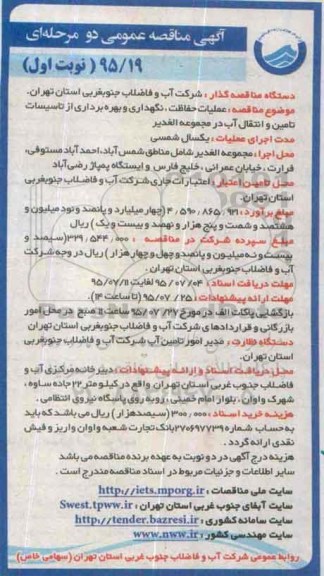 آگهی مناقصه عمومی دو مرحله‌ای
۹۵/۱۹ (نوبت اول)
دستگاه مناقصه گذار : شرکت آب و فاضلاب جنوبغربی استان تهران.
موضوع مناقصه : عملیات حفاظت ، نگهداری و بهره برداری از تاسیسات
تامین و انتقال آب در مجموعه الغدیر
مدت اجرای عملیات : یکسال شمسی
محل اجرا : مجموعه الغدیر شامل مناطق شمس آباد، احمد آباد مستوفی،
فرارت ، خیابان عمرانی ، خلیج فارس و ایستگاه پمپاژ رضی‌آباد
محل تامین اعتبار : اعتبارات جاری شرکت آب و فاضلاب جنوبغربی
استان تهران.
مبلغ برآورد : ۴/۵۹۰/۸۶۵/۹۲۱ (چهار میلیارد و پانصد و نود میلیون و
هشتصد و شصت و پنج هزار و نهصد و بیست و یک) ریال
مبلغ سپرده شرکت در مناقصه : ۳۲۹/۵۴۴/۰۰۰ (سیصد و
بیست و نه میلیون و پانصد و چهل و چهار هزار) ریال در وجه شرکت
آب و فاضلاب جنوبغربی استان تهران .
مهلت دریافت اسناد : ۹۵/۰۷/۰۴ لغایت ۹۵/۰۷/۱۱
مهلت ارائه پیشنهادات : ۹۵/۰۷/۲۵ (تا ساعت ۱۴)
بازگشایی پاکات الف در مورخ ۹۵/۰۷/۲۷ ساعت ۱۱ صبح در محل امور
بازرگانی و قراردادهای شرکت آب و فاضلاب جنوبغربی استان تهران
دستگاه نظارت : مدیر امور تامین آب شرکت آب و فاضلاب جنوبغربی
استان تهران.
محل دریافت اسناد و ارائه پیشنهادات : دبیرخانه مرکزی آب و
فاضلاب جنوب غربی استان تهران واقع در کیلومتر ۲۲ جاده ساوه ،
شهرک واوان ، بلوار امام خمینی ، روبه روی پاسگاه نیروی انتظامی .
هزینه خرید اسناد : ۳۰۰/۰۰۰ (سیصدهزار) ریال می باشد که باید
به حساب شماره ۲۷۰۶۹۷۷۳۹ بانک تجارت شعبه واوان واریز و فیش
نقدی ارائه گردد .
هزینه درج آگهی در دو نوبت به عهده برنده مناقصه می باشد
سایر اطلاعات و جزئیات مربوط در اسناد مناقصه مندرج است .
سایت ملی مناقصات : http://iets.mporg.ir
سایت آبفای جنوب غربی استان تهران : Swest.tpww.ir
سایت سامانه کشوری : http://tender.bazresi.ir
سایت مهندسی کشور : www.nww.ir
روابط عمومی شرکت آب و فاضلاب جنوب غربی استان تهران (سهامی خاص)